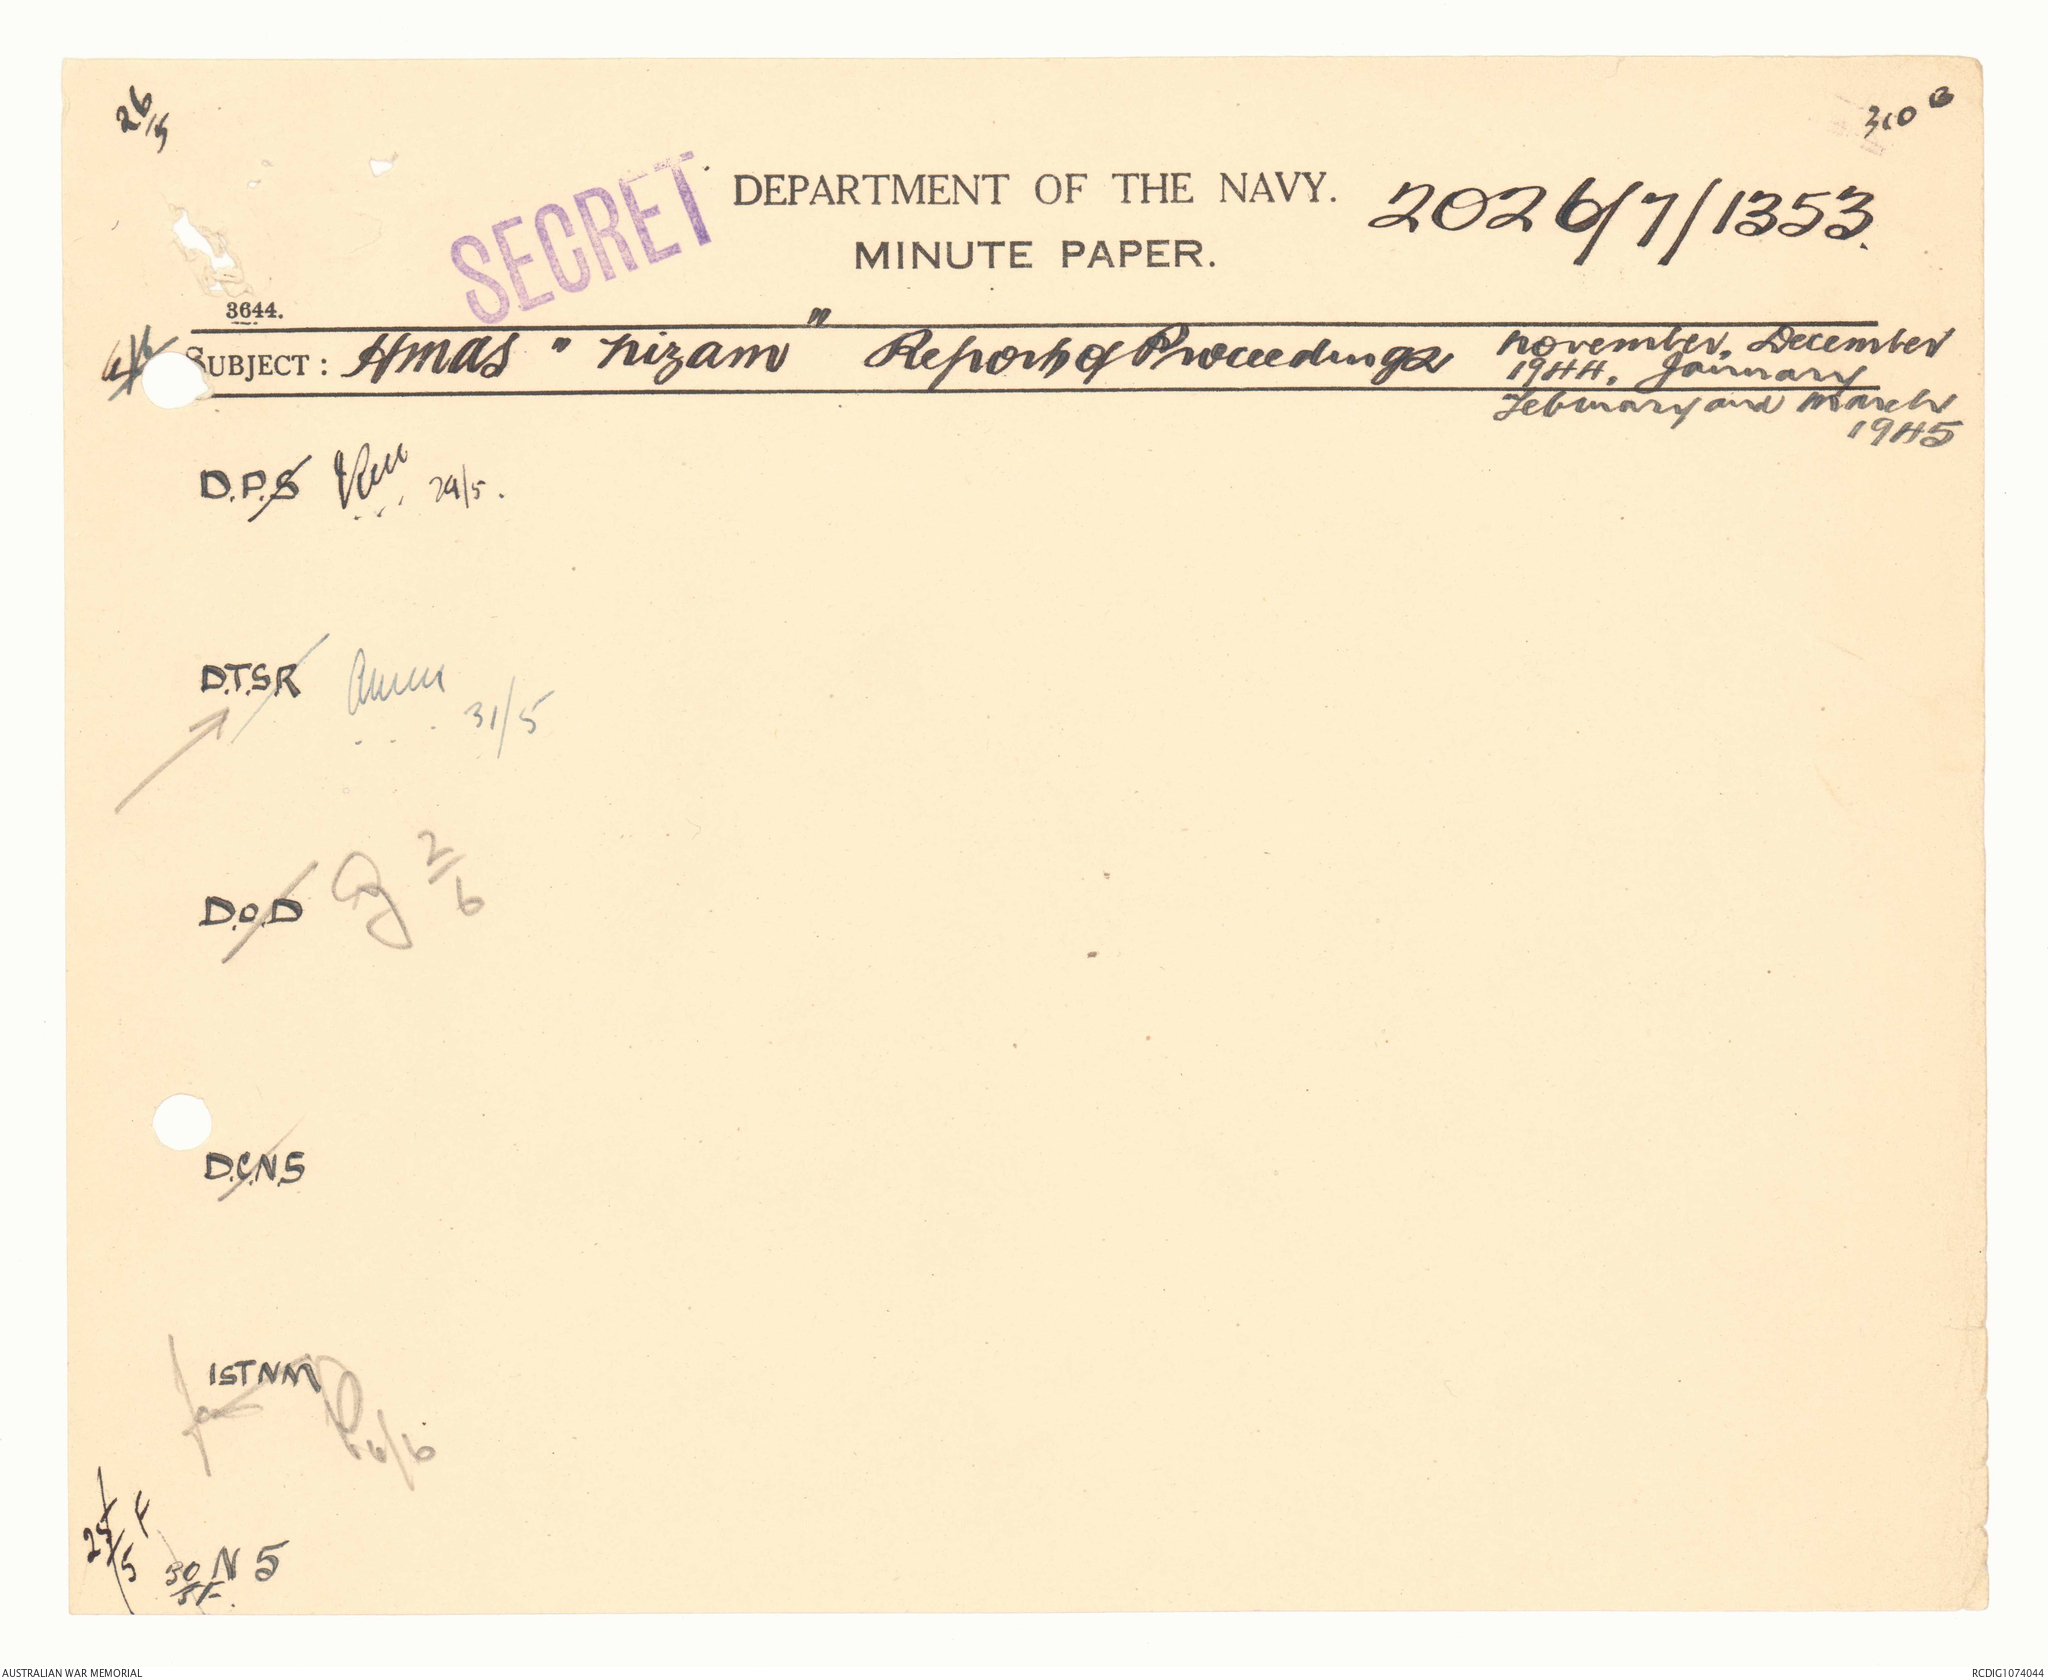 26/5
SECRET
DEPARTMENT OF THE NAVY.
2026/7/1353.
MINUTE PAPER.
3644.
SUBJECT: HMAS "Nizam" Report of Proceedings November, December
1944, January
February and March
1945
D.P.S 29/5.
D.T.S.R 31/5
D.O.D 2/6
D.C.N.S
1ST N.M
25/5
30/5 N 5
AUSTRALIAN WAR MEMORIAL
RCDIG1074044